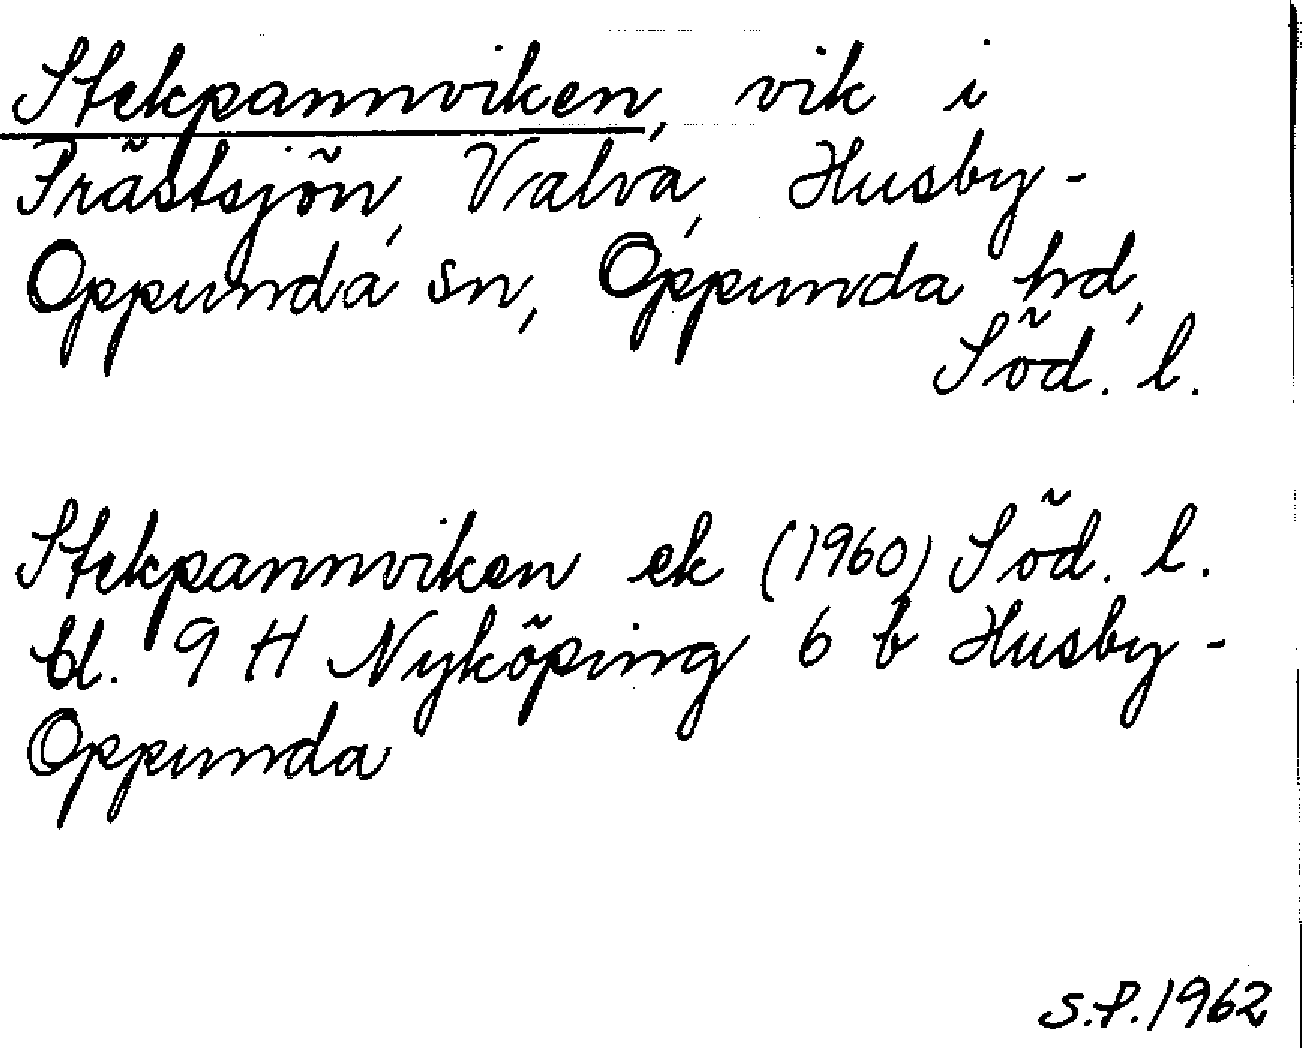 Stekpannviken, vik i
Prästsjön, Valva, Husby-
Oppunda sn, Oppunda hd,
Söd. l.
Stekpannviken ek (1960) Söd. l.
bl. 9 H Nyköping 6 b Husby-
Oppunda
S.P. 1962